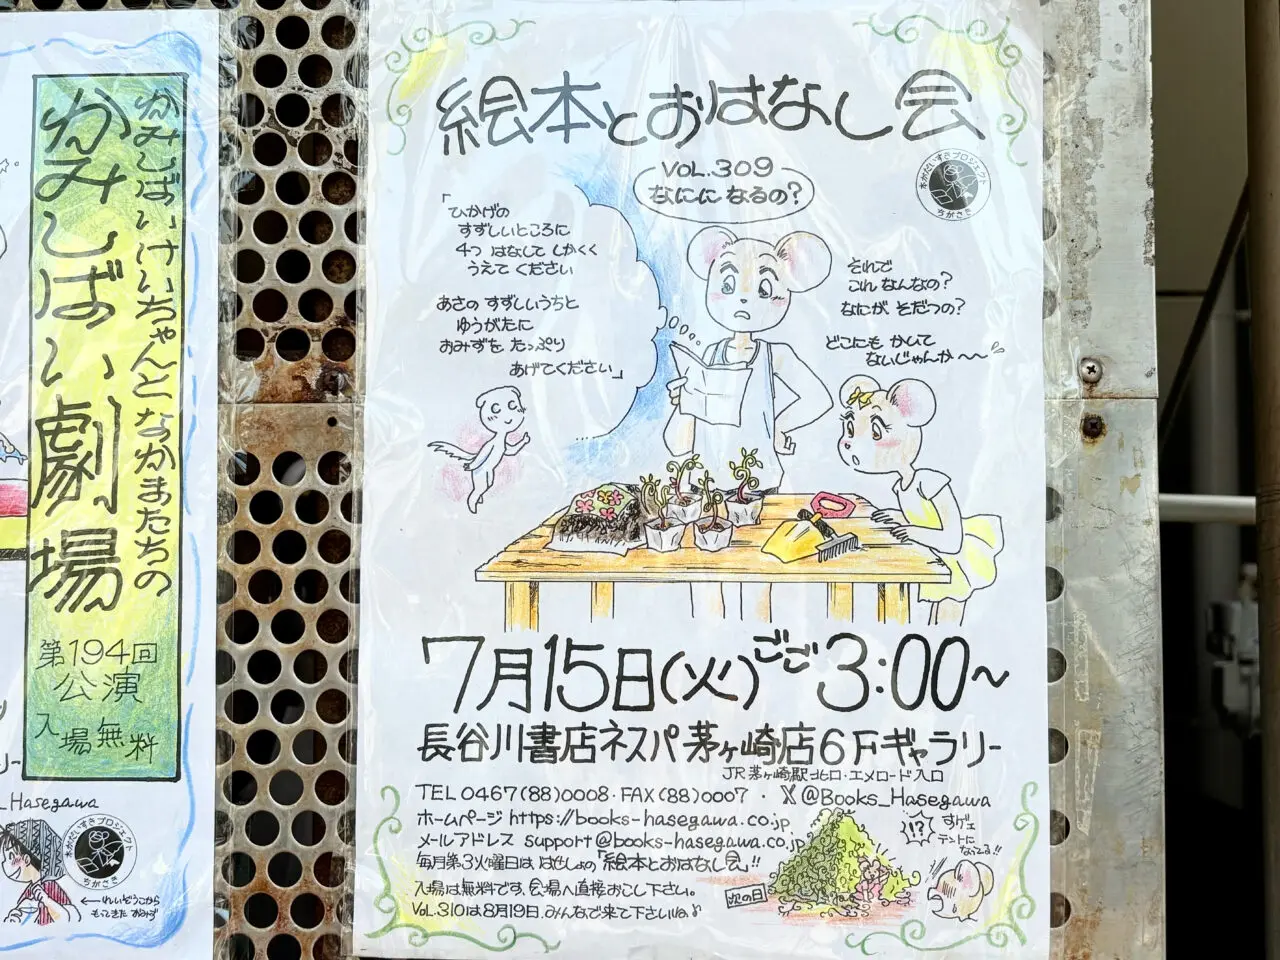 かみしばいけいちゃんとなかまたちの
かみしばい劇場
第194回
公演
入場無料
_Hasegawa
本がだいすきプロジェクト
ちがさき
←れいぞうこから
もってきた おみず
絵本とおはなし会
VOL.309
なにに なるの?
本がだいすきプロジェクト
ちがさき
「ひかげの
すずしいところに
4つ はなして しかくく
うえて ください
あさの すずしいうちと
ゆうがたに
おみずを たっぷり
あげてください」
それで
これ なんなの?
なにが そだつの?
どこにも かいて
ないじゃんか〜〜
7月15日(火)ごご3:00〜
長谷川書店ネスパ茅ヶ崎店6Fギャラリー
JR茅ヶ崎駅北口・エメロード入口
TEL 0467(88)0008・FAX(88)0007・X@Books_Hasegawa
ホームページ https://books-hasegawa.co.jp
メールアドレス support@books-hasegawa.co.jp
毎月第3火曜日は はせしょの「絵本とおはなし会」!!
入場は無料です。会場へ直接おこし下さい。
Vol.310は8月19日、みんなで来て下さいね♪
次の日
!?
すげェ
テントに
なってる!!